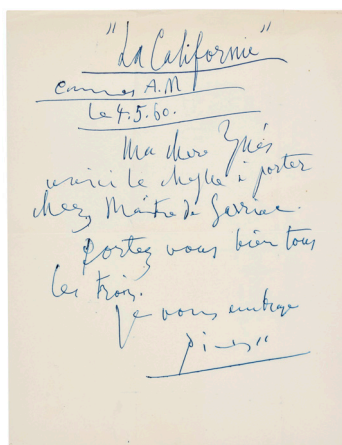 "La Californie"
Cannes A.M
le 4.5.60.
Ma chère Ynés
voici le chèque à porter
chez Maître de Sariac.
portez vous bien tous
les trois.
je vous embrasse
Picasso